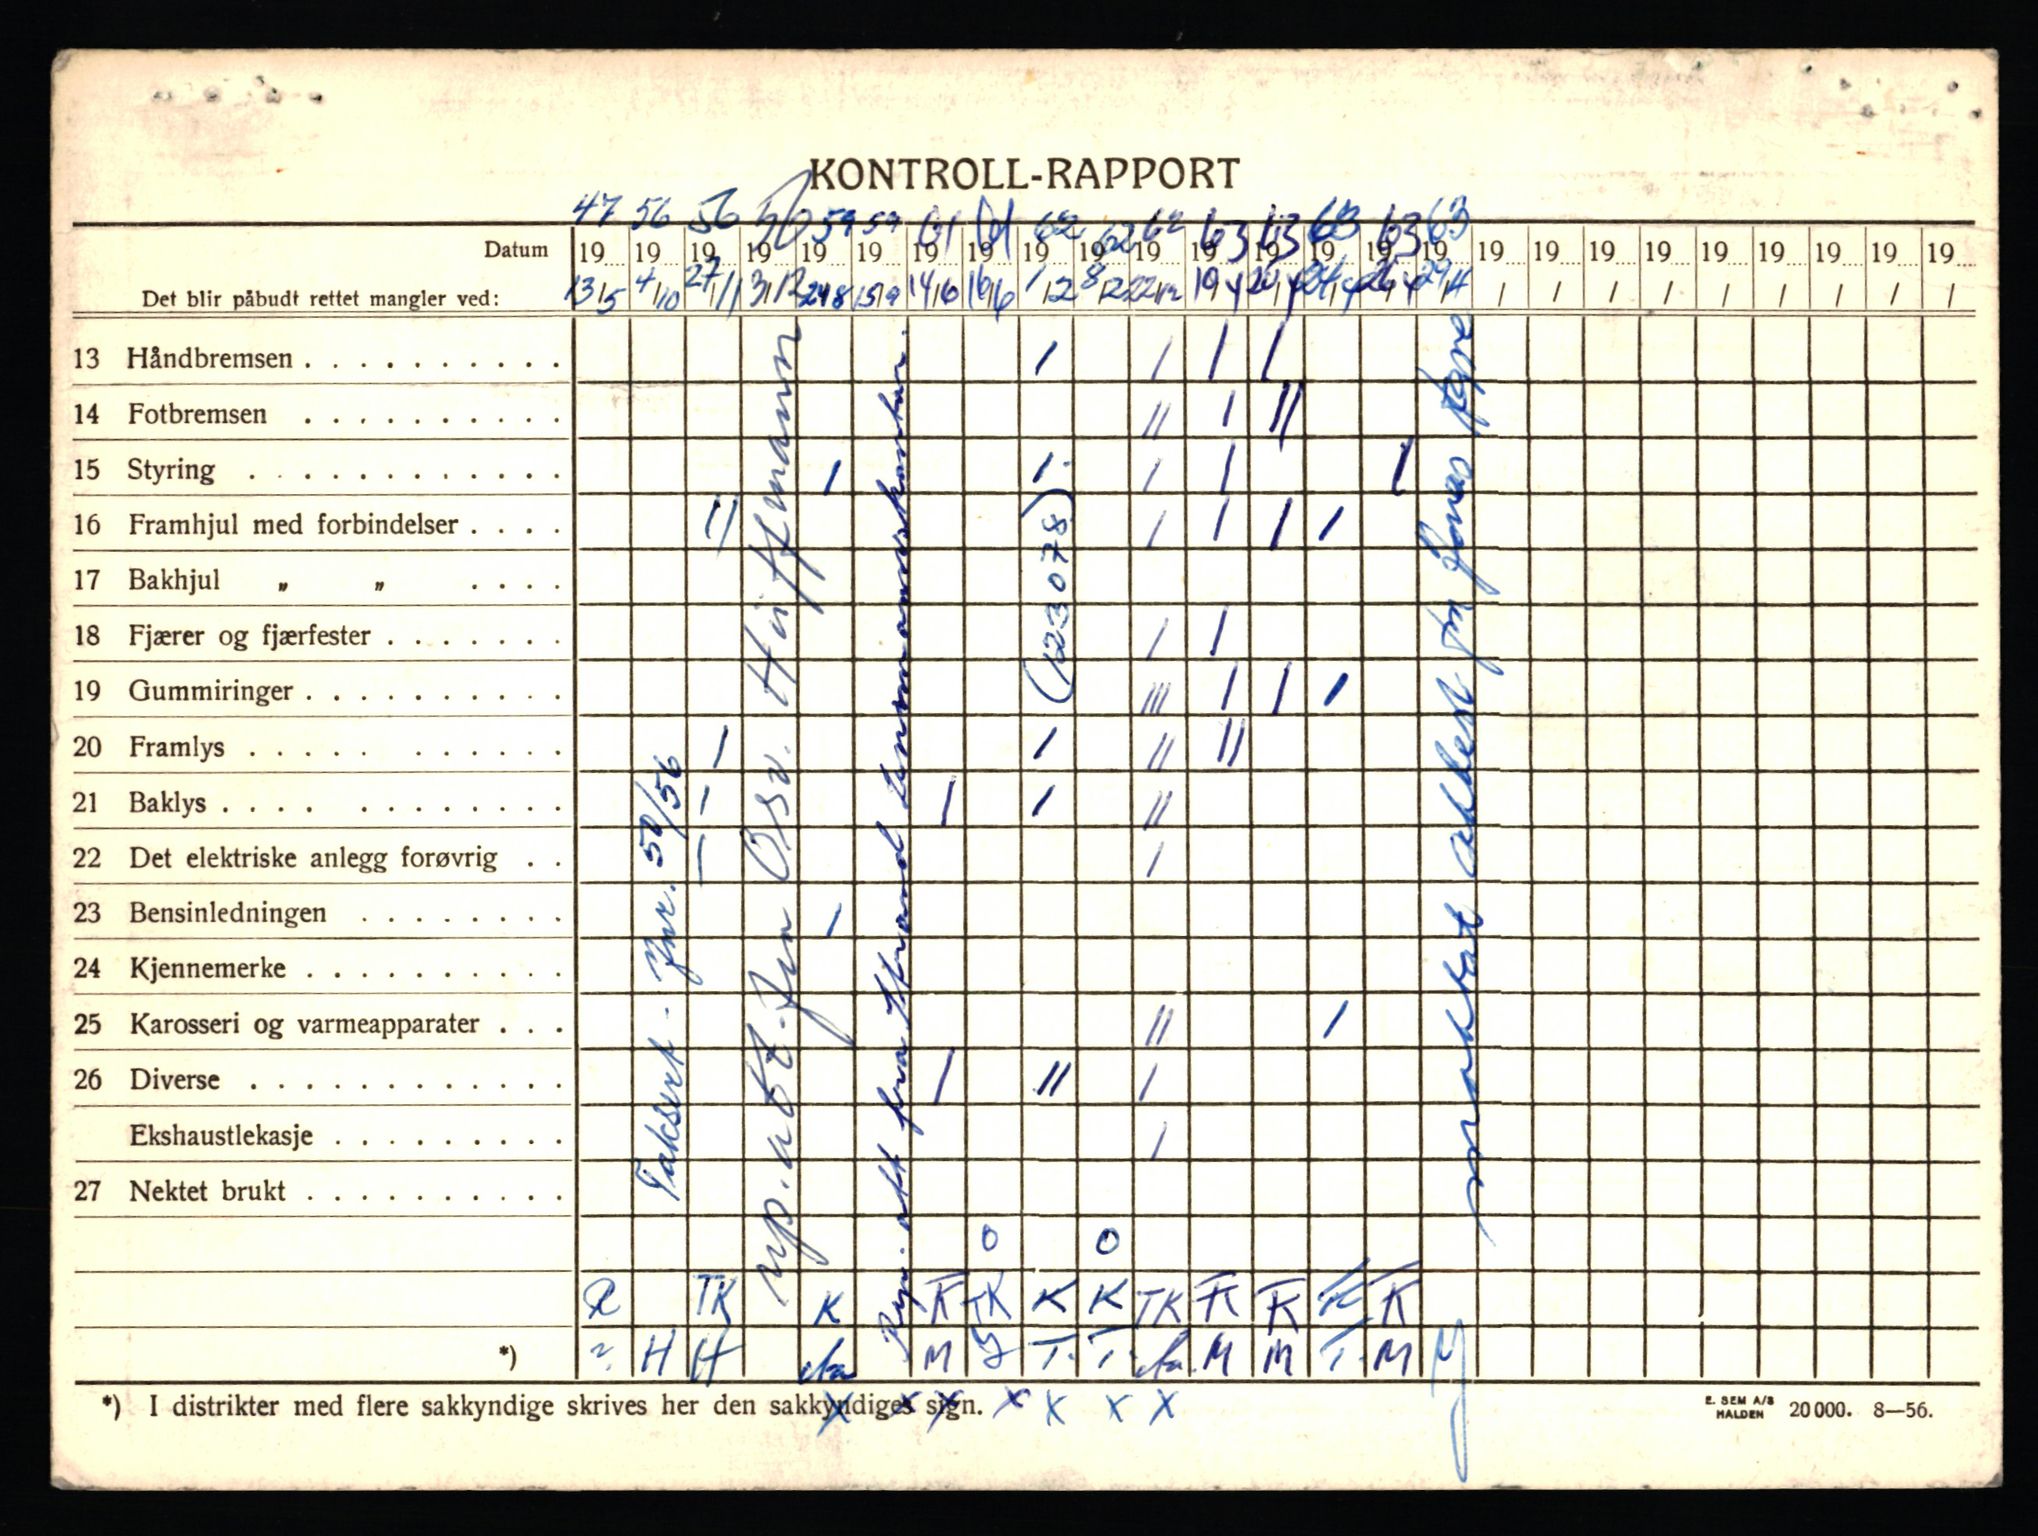 KONTROLL-RAPPORT
47 56 56 56 59 59 61 61 62 62 62 63 63 63 63 63
Datum 19 19 19 19 19 19 19 19 19 19 19 19 19 19 19 19 19 19 19 19 19 19 19 19 19
Det blir påbudt rettet mangler ved: 13/5 4/10 27/11 3/12 24/8 15/9 14/6 16/6 1/12 8/12 22/12 19/4 20/4 24/4 26/4 29/4 / / / / / / / / /
13 Håndbremsen . . . . . . . . . . / / / /
14 Fotbremsen . . . . . . . . . . // / //
15 Styring . . . . . . . . . . . . / / / / /
16 Framhjul med forbindelser . . . . // / / / /
17 Bakhjul „ „ . . . .
18 Fjærer og fjærfester . . . . . . . / /
19 Gummiringer . . . . . . . . . . /// / / /
20 Framlys . . . . . . . . . . / / // //
21 Baklys . . . . . . . . . . . . / / / //
22 Det elektriske anlegg forøvrig . . / /
23 Bensinledningen . . . . . . . . /
24 Kjennemerke . . . . . . . . . .
25 Karosseri og varmeapparater . . . // /
26 Diverse . . . . . . . . . . . . / // /
Ekshaustlekasje . . . . . . . . . /
27 Nektet brukt . . . . . . . . . .
Taksert - Jnr. 50/56
np. att. fra Osv. Hüffmann
att fra Strand lensmannskontor.
(123078)
mottatt attest fra Jonas
O O
R TK K K TK K K TK K K K K
*) H H M T. T. M M T. M
*) I distrikter med flere sakkyndige skrives her den sakkyndiges sign.
x x x x x x x
E. SEM A/S
HALDEN 20 000. 8—56.